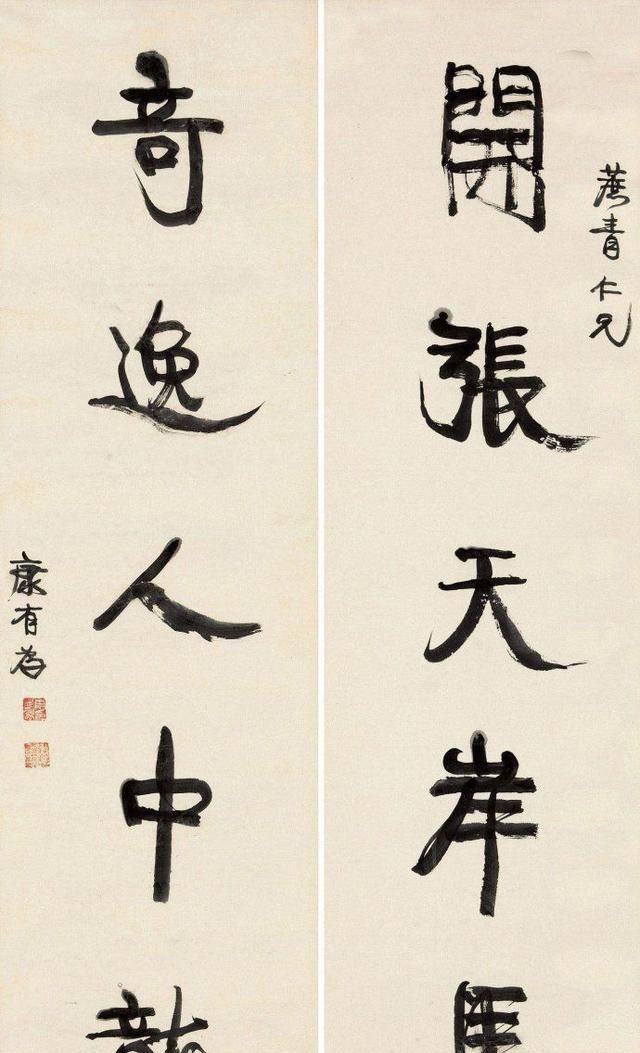 蔗青仁兄
開張天岸馬
奇逸人中龍
康有為